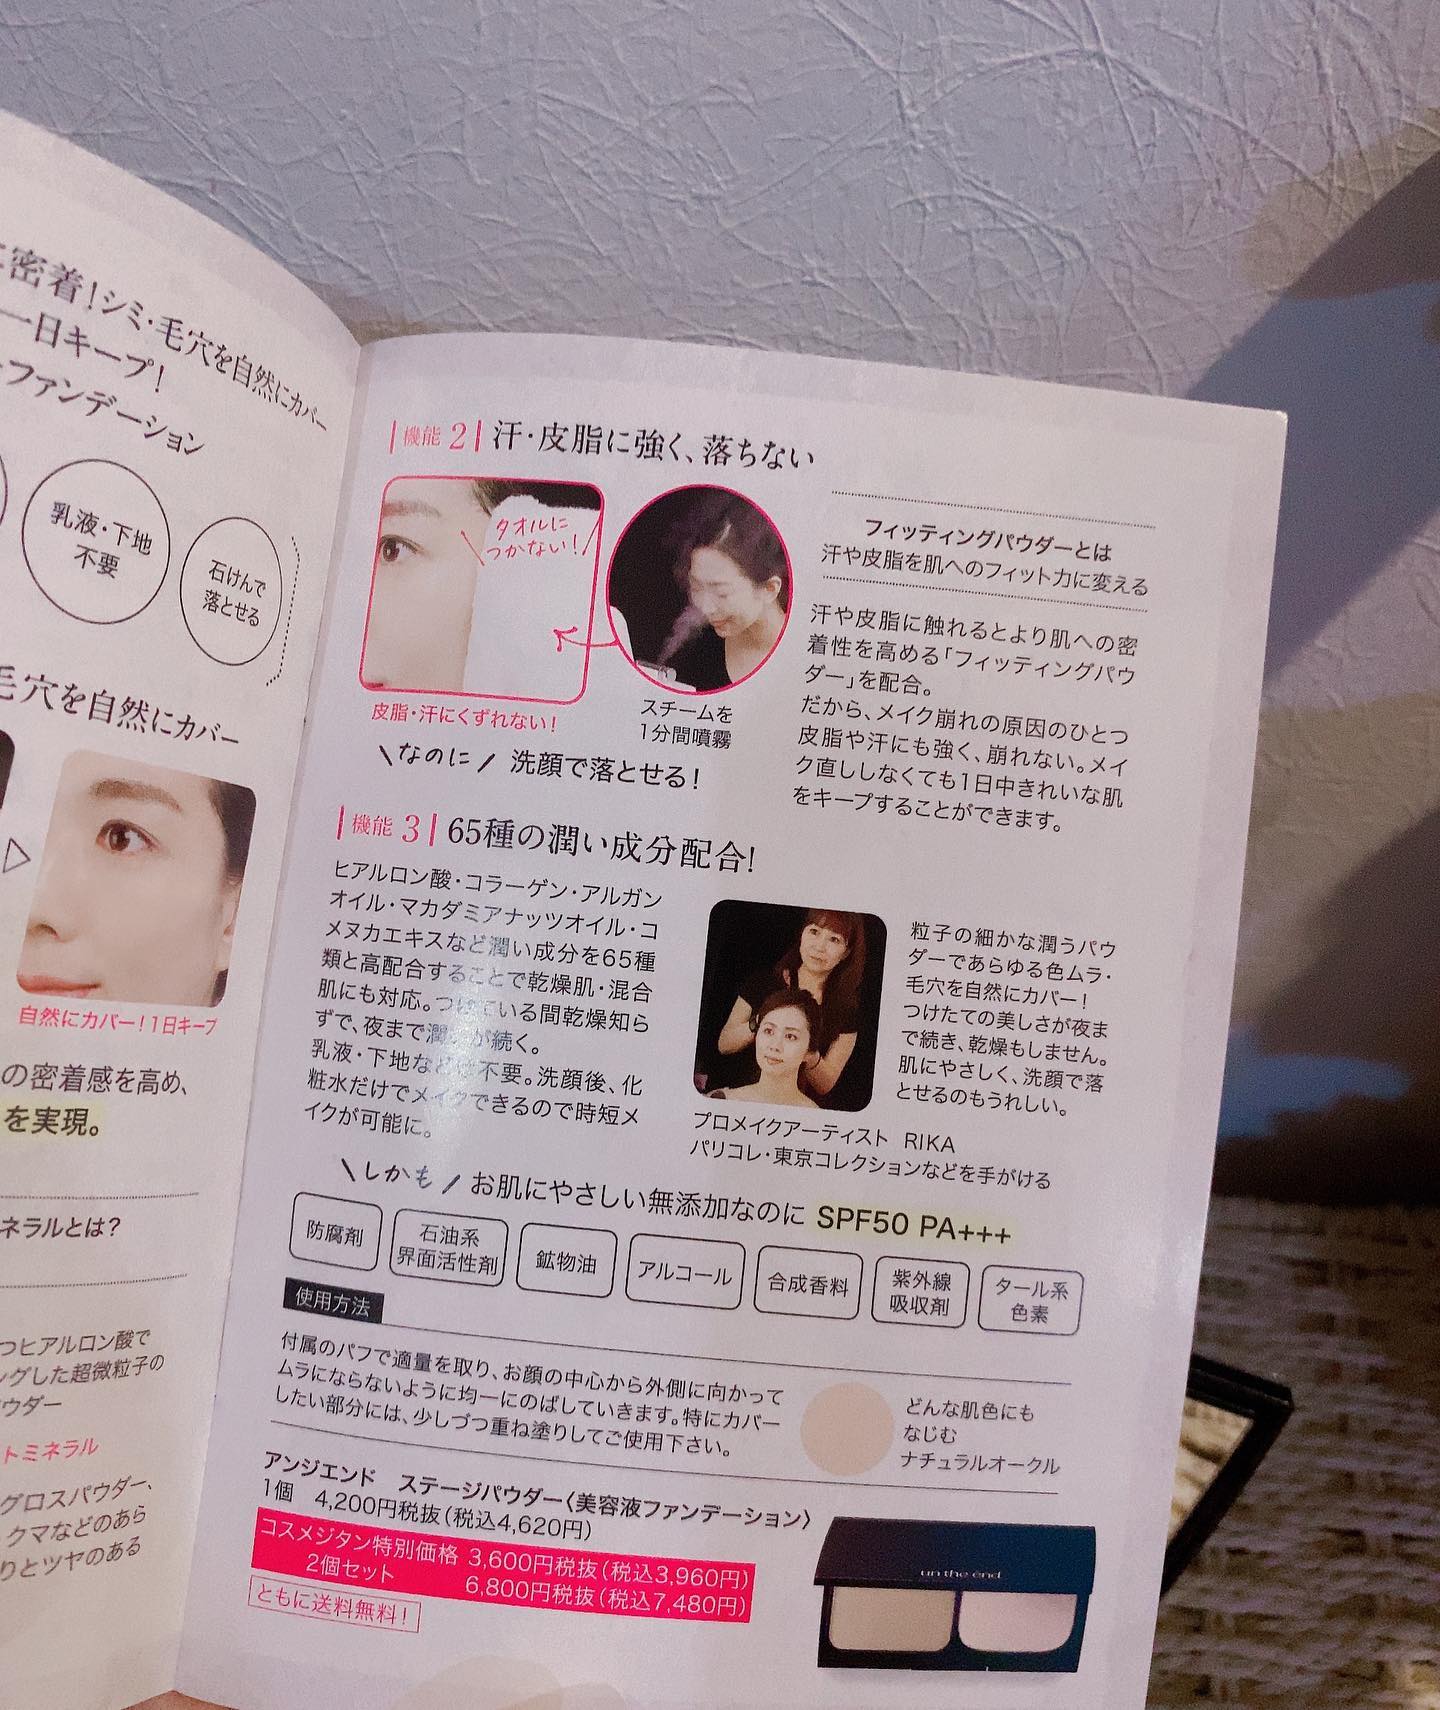 密着!シミ・毛穴を自然にカバー
一日キープ!
ファンデーション
乳液・下地
不要
石けんで
落とせる
毛穴を自然にカバー
自然にカバー!1日キープ
の密着感を高め、
を実現。
ネラルとは?
つヒアルロン酸で
ングした超微粒子の
ウダー
トミネラル
グロスパウダー、
クマなどのあら
りとツヤのある
機能 2 汗・皮脂に強く、落ちない
タオルに
つかない!
皮脂・汗にくずれない!
スチームを
1分間噴霧
\なのに/ 洗顔で落とせる!
フィッティングパウダーとは
汗や皮脂を肌へのフィット力に変える
汗や皮脂に触れるとより肌への密
着性を高める「フィッティングパウ
ダー」を配合。
だから、メイク崩れの原因のひとつ
皮脂や汗にも強く、崩れない。メイ
ク直ししなくても1日中きれいな肌
をキープすることができます。
機能 3 65種の潤い成分配合!
ヒアルロン酸・コラーゲン・アルガン
オイル・マカダミアナッツオイル・コ
メヌカエキスなど潤い成分を65種
類と高配合することで乾燥肌・混合
肌にも対応。つけている間乾燥知ら
ずで、夜まで潤いが続く。
乳液・下地などは不要。洗顔後、化
粧水だけでメイクできるので時短メ
イクが可能に。
粒子の細かな潤うパウ
ダーであらゆる色ムラ・
毛穴を自然にカバー!
つけたての美しさが夜ま
で続き、乾燥もしません。
肌にやさしく、洗顔で落
とせるのもうれしい。
プロメイクアーティスト RIKA
パリコレ・東京コレクションなどを手がける
\しかも/ お肌にやさしい無添加なのに SPF50 PA+++
防腐剤
石油系
界面活性剤
鉱物油
アルコール
合成香料
紫外線
吸収剤
タール系
色素
使用方法
付属のパフで適量を取り、お顔の中心から外側に向かって
ムラにならないように均一にのばしていきます。特にカバー
したい部分には、少しづつ重ね塗りしてご使用下さい。
どんな肌色にも
なじむ
ナチュラルオークル
アンジエンド ステージパウダー〈美容液ファンデーション〉
1個 4,200円税抜(税込4,620円)
コスメジタン特別価格 3,600円税抜(税込3,960円)
2個セット 6,800円税抜(税込7,480円)
ともに送料無料!
un the end